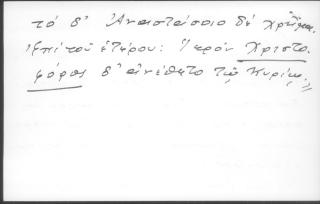 τό δ' Ἀναστάσοιο δέ χρῆμα.
Ἐπί τοῦ ἑτέρου: Ἱερόν Χριστο-
φόρος δ' ἀνέθετο τῷ Κυρίῳ.